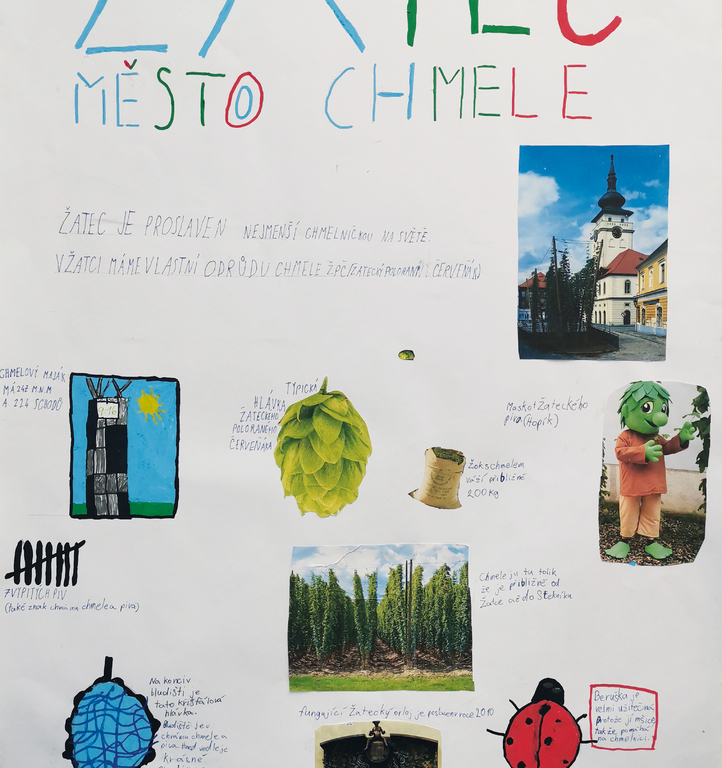 ŽATEC
MĚSTO CHMELE
ŽATEC JE PROSLAVEN NEJMENŠÍ CHMELNIČKOU NA SVĚTĚ.
V ŽATCI MÁME VLASTNÍ ODRŮDU CHMELE ŽPČ(ŽATECKÝ POLORANÝ ČERVEŇÁK)
CHMELOVÝ MAJÁK
MÁ 242 M.N.M
A 224 SCHODŮ
TYPICKÁ
HLÁVKA
ŽATECKÉHO
POLORANÉHO
ČERVEŇÁKA
Maskot Žateckého
piva (Hopík)
Žok s chmelem
váží přibližně
200 kg
7 VYPITÍCH PIV
(také znak chrámu chmele a piva)
Chmele je tu tolik
že je přibližně od
Žatce až do Stekníka
Na konci v
bludišti je
tato křišťálová
hlávka.
Bludiště je v
chrámu chmele a
piva hned vedle je
krásné
fungující Žatecký orloj je postaven v roce 2010
Beruška je
velmi užitečná
protože jí mšice
takže pomáhá
na chmelnici.